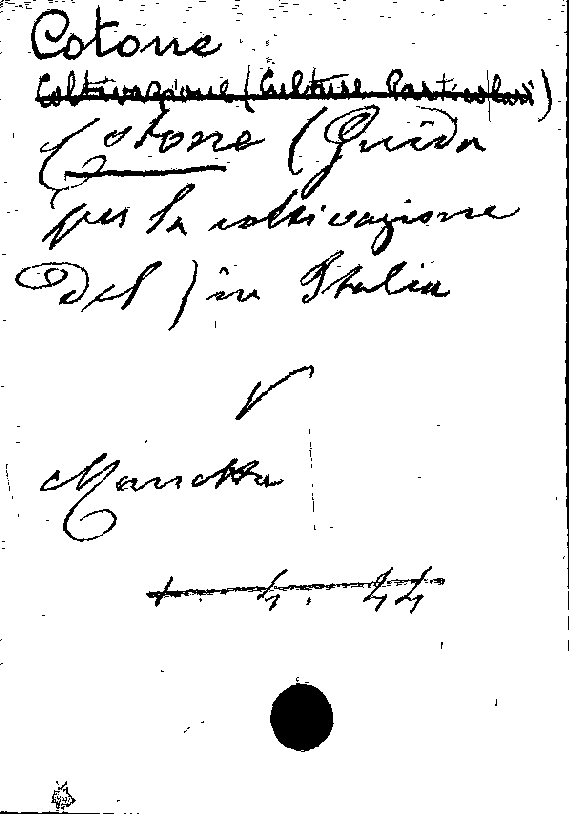 Cotone
Coltivazione (Culture Particolari)
Cotone (Guida
per la coltivazione
del) in Italia
V
Marotta
1. 4. 44